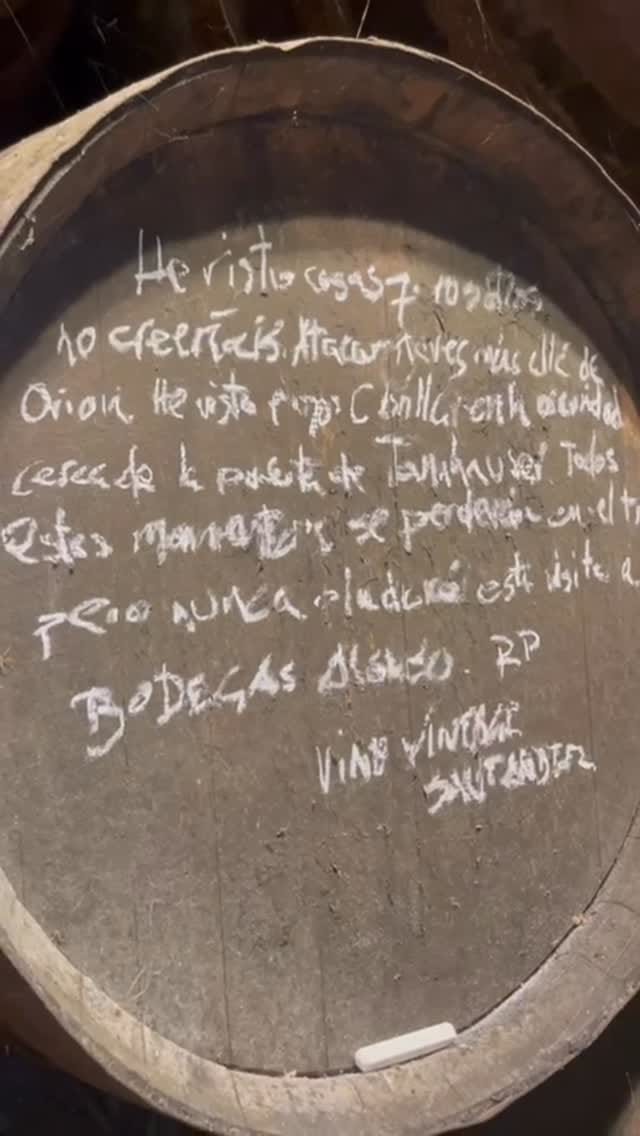 He visto cosas q. vosotros
no creeríais. Atacar naves más allá de
Orion. He visto rayos C brillar en la oscuridad
cerca de la puerta de Tannhauser. Todos
Estos momentos se perderán en el ti
pero nunca olvidaré esta visita a
BODEGAS Alonso. RP
VINO VINTAGE
SANTANDER